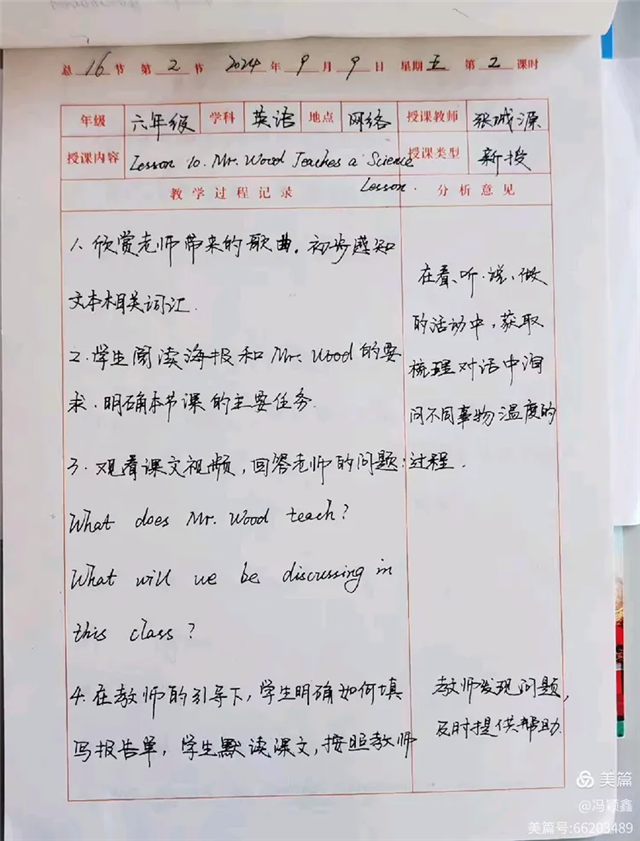 总 16 节 第 2 节 2024 年 9 月 9 日 星期 五 第 2 课时
年级 六年级 学科 英语 地点 网络 授课教师 张城源
授课内容 Lesson 10. Mr. Wood Teaches a Science Lesson. 授课类型 新授
教学过程记录 分析意见
1、欣赏老师带来的歌曲。初步感知
文本相关词汇.
2.学生阅读海报和Mr. Wood的要
求.明确本节课的主要任务.
3、观看课文视频,回答老师的问题:
What does Mr. Wood teach?
What will we be discussing in
this class?
4.在教师的引导下,学生明确如何填
写报告单,学生默读课文,按照教师
在看、听、说、做
的活动中,获取
梳理对话中询
问不同事物温度的
过程.
教师发现问题,
及时提供帮助.
美篇
@冯颖鑫
美篇号:66203489